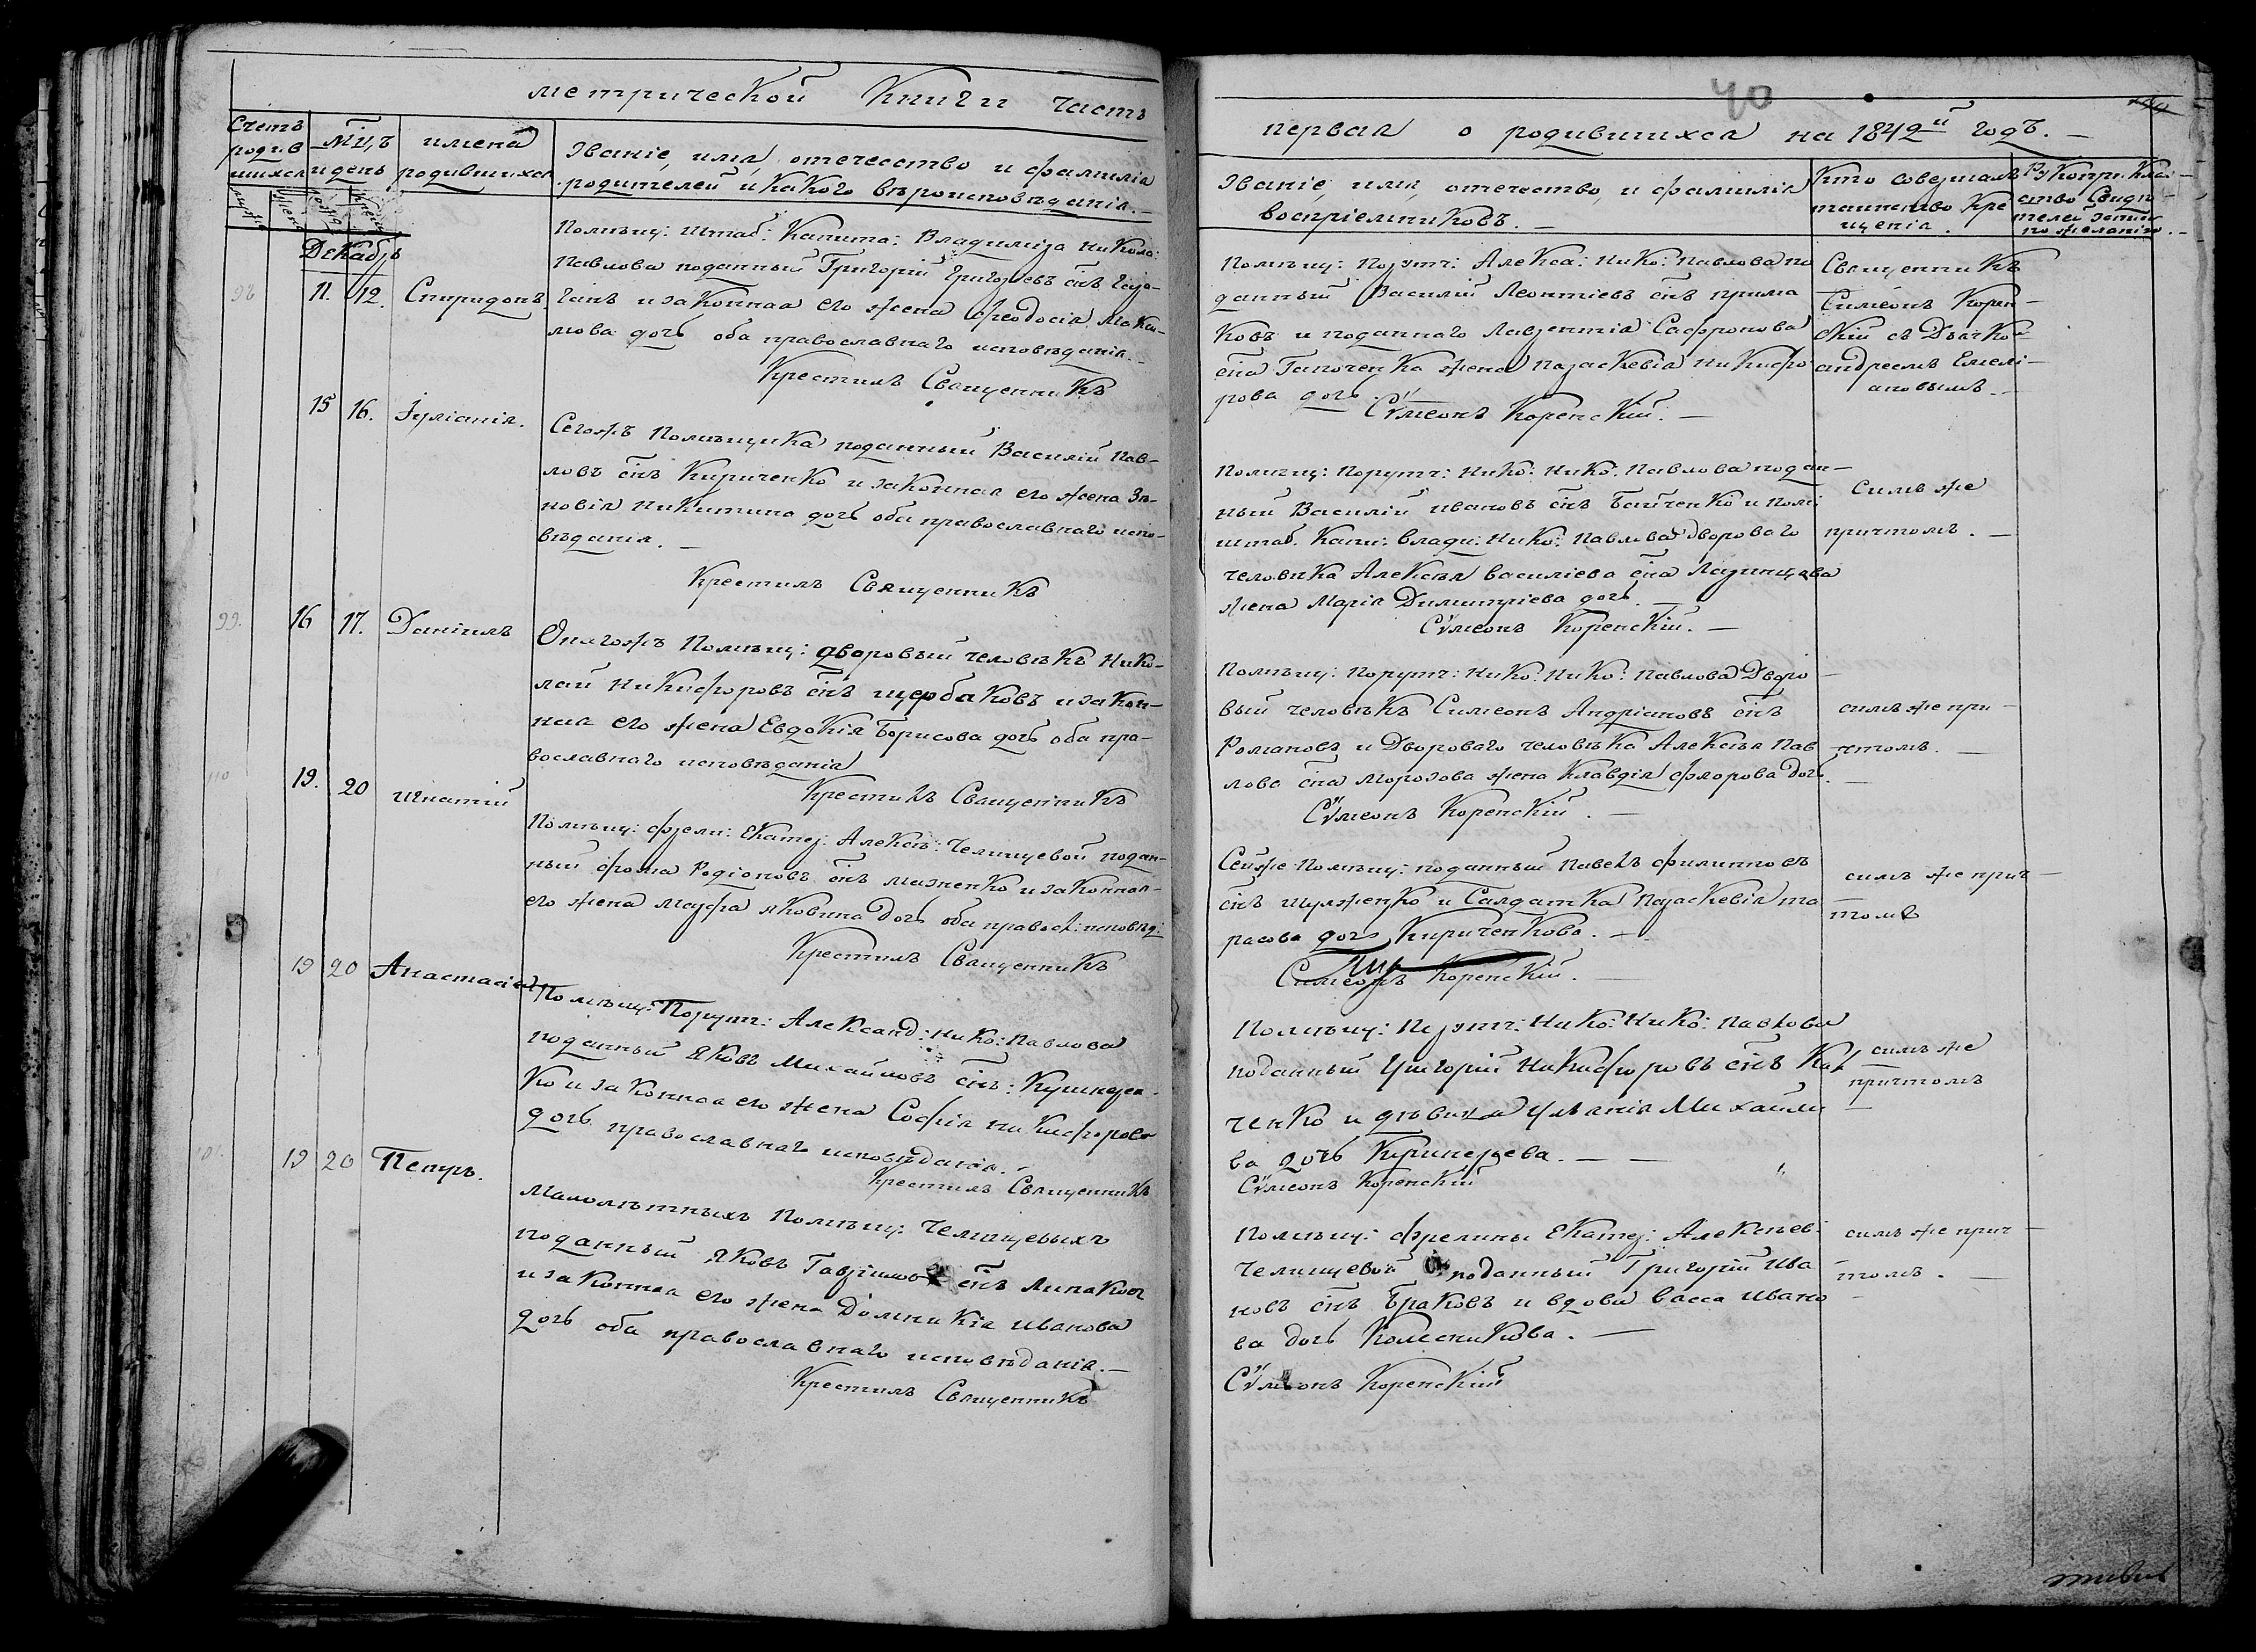 метрической Книги часть
Счетъ родив шихся
Мцъ и день
имена родившихся
Званіе, имя, отечество и фамилія
родителей и какого вѣроисповѣданія. —
Декабрь
98 11. 12. Спиридонъ.
Помѣщ: Штаб: Капита: Владимира Никола:
Павлова поданный Григорій Григорьевъ снъ
и законная его жена Феодосія
дочь оба православнаго исповѣданія. —
Крестилъ Священникъ
15 16. Іуліанія.
Сегожъ Помѣщика поданный Василій Пав-
ловъ снъ Кириченко и законная его жена Зѣ-
новія Никитина дочь оба православнаго испо-
вѣданія. —
Крестилъ Священникъ
99. 16 17. Даніилъ
Онагожъ Помѣщ: дворовый человѣкъ Нико-
лай Никифоровъ снъ Щербаковъ и закон-
ная его жена Евдокія Борисова дочь оба пра-
вославнаго исповѣданія
Крестилъ Священникъ
19. 20 Игнатій
Помѣщ: Фрели: Екатер: Алексѣ: Челищевой подан-
ный Фома Родіоновъ снъ и законная
его жена Марфа Яковина дочь оба правосл: исповѣд:
Крестилъ Священникъ
19 20 Анастасія
Помѣщ: Порутч: Александ: Нико: Павлова
поданный Яковъ Михайловъ снъ:
ко и законная его жена Софія Никифорова
дочь православнаго исповѣданія.
Крестилъ Священникъ
101. 19 20 Петръ.
Малолѣтныхъ Помѣщ: Челищевыхъ
поданный Яковъ Гавріиловъ снъ Липаковъ
и законная его жена Домникія Иванова
дочь оба православнаго исповѣданія. —
Крестилъ Священникъ
40
первая о родившихся на 1842й годъ. —
Званіе, имя, отечество, и фамилія
воспріемниковъ. —
Кто совершалъ
таинство Кре
щенія.
Рукоприклад-
ство Свидѣ-
телей записи
по желанію. —
Помѣщ: Порутч: Алекса: Нико: Павлова по
данный Василій Леонтіевъ снъ
ковъ и поданнаго Лаврентія Сафронова
сна Гапоченка жена Параскевія Никифо
рова дочь.
Сѵмеонъ Коренскій. —
Священникъ
Симеонъ Корен-
скій съ Дьячко-
Андреемъ Емелі-
ановымъ. —
Помѣщ: Порутч: Нико: Нико: Павлова подан-
ный Василій Ивановъ снъ Байченко и Помѣ
штаб. Капи: Влади: Нико: Павлова дворового
человѣка Алексѣя Василіева сна
жена Марія Димитріева дочь. —
Сѵмеонъ Коренскій. —
Симъ же
причтомъ. —
Помѣщ: Порутч: Нико: Нико: Павлова Дворо-
вый человѣкъ Симеонъ Андріановъ снъ
Романовъ и Двороваго человѣка Алексѣя Пав
лова сна Морозова жена Клавдія Флорова дочь. —
Сѵмеонъ Коренскій. —
симъ же при-
чтомъ. —
Сейже Помѣщ: поданный Павелъ Филипповъ
снъ Шулженко и Салдатка Параскевія Та
расова дочь Кириченкова. —
Симеонъ Коренскій. —
симъ же прич-
томъ
Помѣщ: Порутч: Нико: Нико: Павлова
поданный Григорій Никифоровъ снъ
ченко и дѣвица Уліанія Михайло
ва дочь —
Сѵмеонъ Коренскій
симъ же
причтомъ
Помѣщ: Фрелины Екатер: Алексѣев:
Челищевой поданный Григорій Ива
новъ снъ Браковъ и вдова Васса Ивано
ва дочь Колесникова. —
Сѵмеонъ Коренскій
симъ же прич-
томъ. —